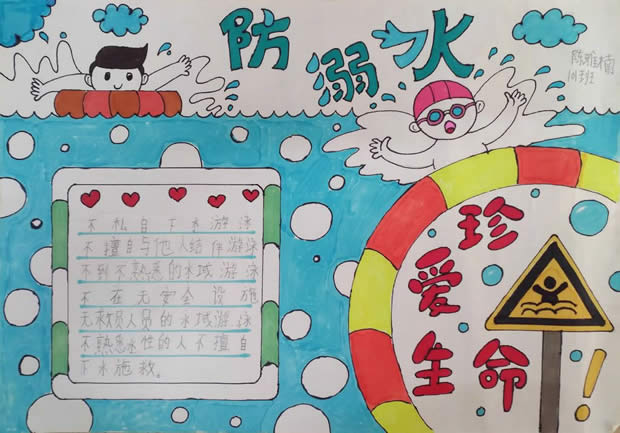 防溺水
陈雅楠
不私自下水游泳
不擅自与他人结伴游泳
不到不熟悉的水域游泳
不在无安全设施
无救员人员的水域游泳
不熟悉水性的人不擅自
下水施救。
珍
爱
生命!